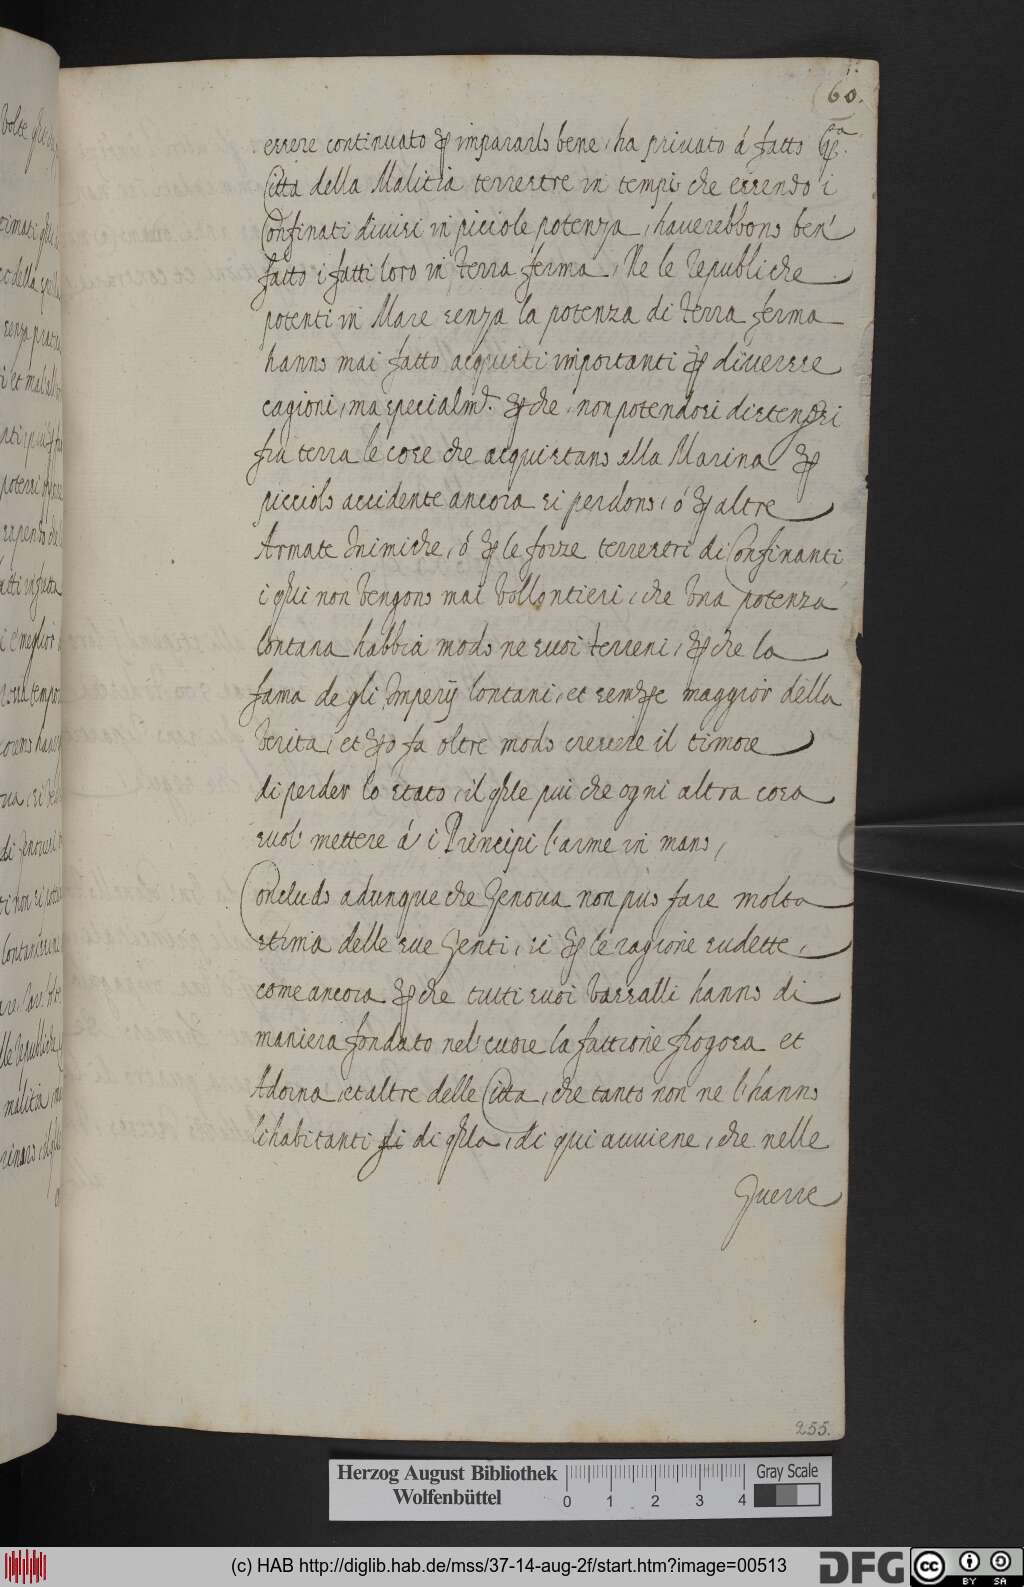 60.
essere continuato ꝑ impararlo bene, ha privato á fatto qsta.
Città della Malitia terrestre in tempi che essendo i
Confinati divisi in piciole potenza, haverebbono ben'
fatto i fatti loro in terra ferma. Ne le Republiche
potenti in Mare senza la potenza di terra ferma
hanno mai fatto acquisti importanti ꝑ diverse
cagioni, ma specialmte. ꝑche, non potendosi distendersi
fra terra le cose che acquistano alla Marina ꝑ
picciolo accidente ancora si perdono, ó ꝑ altre
Armate Inimiche, ó ꝑ le forze terrestri di Confinanti
i qli non vengono mai vollontieri, che una potenza
lontana habbia modo ne suoi terreni, ꝑche la
fama de gli Imperij lontani, et sempe maggior della
verita, et ꝑo fa oltre modo crescere il timore
di perder lo stato, il qle piu che ogni altra cosa
suol' mettere á i Principi l'arme in mano,
Concludo adunque che Genova non può fare molta
stima delle sue genti, si ꝑ le ragione sudette,
come ancora ꝑche tutti suoi vassalli hanno di
maniera fondato nel' cuore la fattione frogosa et
Adorna, et altre delle Città, che tanto non ne l'hanno
li habitanti di qlla, di qui avviene, che nelle
Guerre
255.
Herzog August Bibliothek
Wolfenbüttel
0 1 2 3 4
Gray Scale
(c) HAB http://diglib.hab.de/mss/37-14-aug-2f/start.htm?image=00513
DFG
cc BY SA